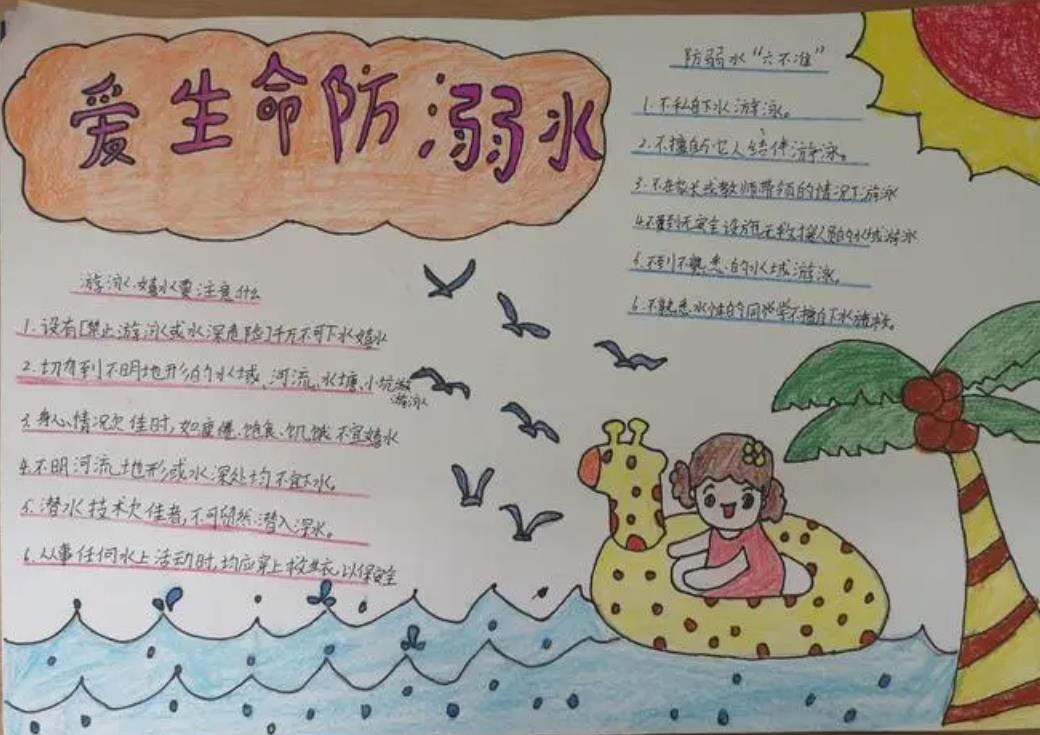 爱生命防溺水
游泳、嬉水要注意什么
1. 设有[禁止游泳或水深危险]千万不可下水嬉水
2. 切勿到不明地形的水域、河流、水塘、小坑游
游泳
3. 身心情况欠佳时，如疲倦、饱食、饥饿不宜嬉水
4. 不明河流地形或水深处均不宜下水。
5. 潜水技术欠佳者，不可贸然潜入深水。
6. 从事任何水上活动时，均应穿上救生衣，以保安全
防弱水“六不准”
1. 不私自下水游泳。
2. 不擅自与它人结伴游泳。
3. 不在家长或教师带领的情况下游泳
4. 不到无安全设施无救援人员的水域游泳
5. 不到不熟悉的水域游泳。
6. 不熟悉水性的同学不擅自下水施救。